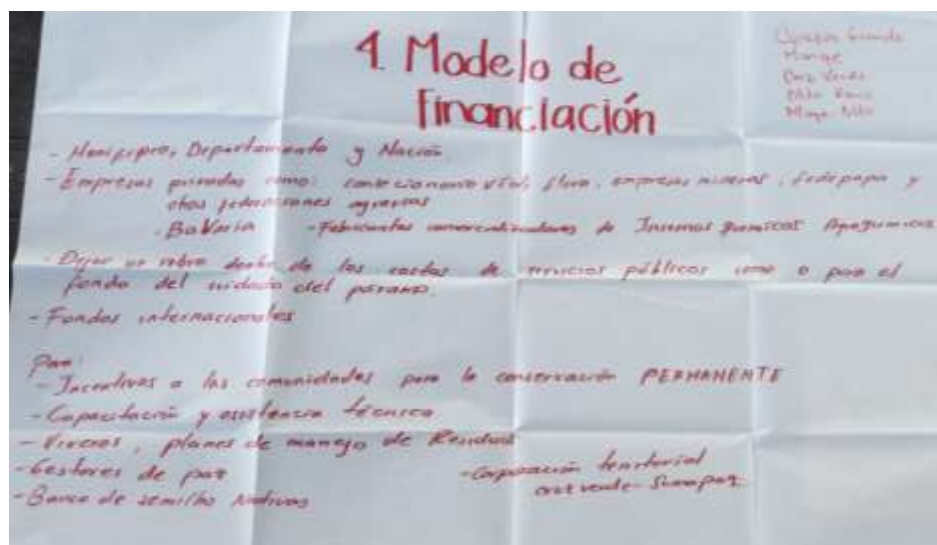 4. Modelo de
Financiación
Cruz Verde
- Municipio, Departamento y Nación.
- Empresas privadas como: concesionario vial, flora, empresas mineras, fedepapa y
otras federaciones agrarias
- Bavaria - Fabricantes comercializadores de Insumos químicos Agroquímicos
- Dejar un rubro dentro de los costos de servicios públicos como o para el
fondo del cuidado del páramo.
- Fondos internacionales
Para:
- Incentivos a las comunidades para la conservación PERMANENTE
- Capacitación y asistencia técnica
- Viveros, planes de manejo de Residuos
- Gestores de paz
- Corporación territorial
cruz verde - Sumapaz
- Banco de semillas Nativas